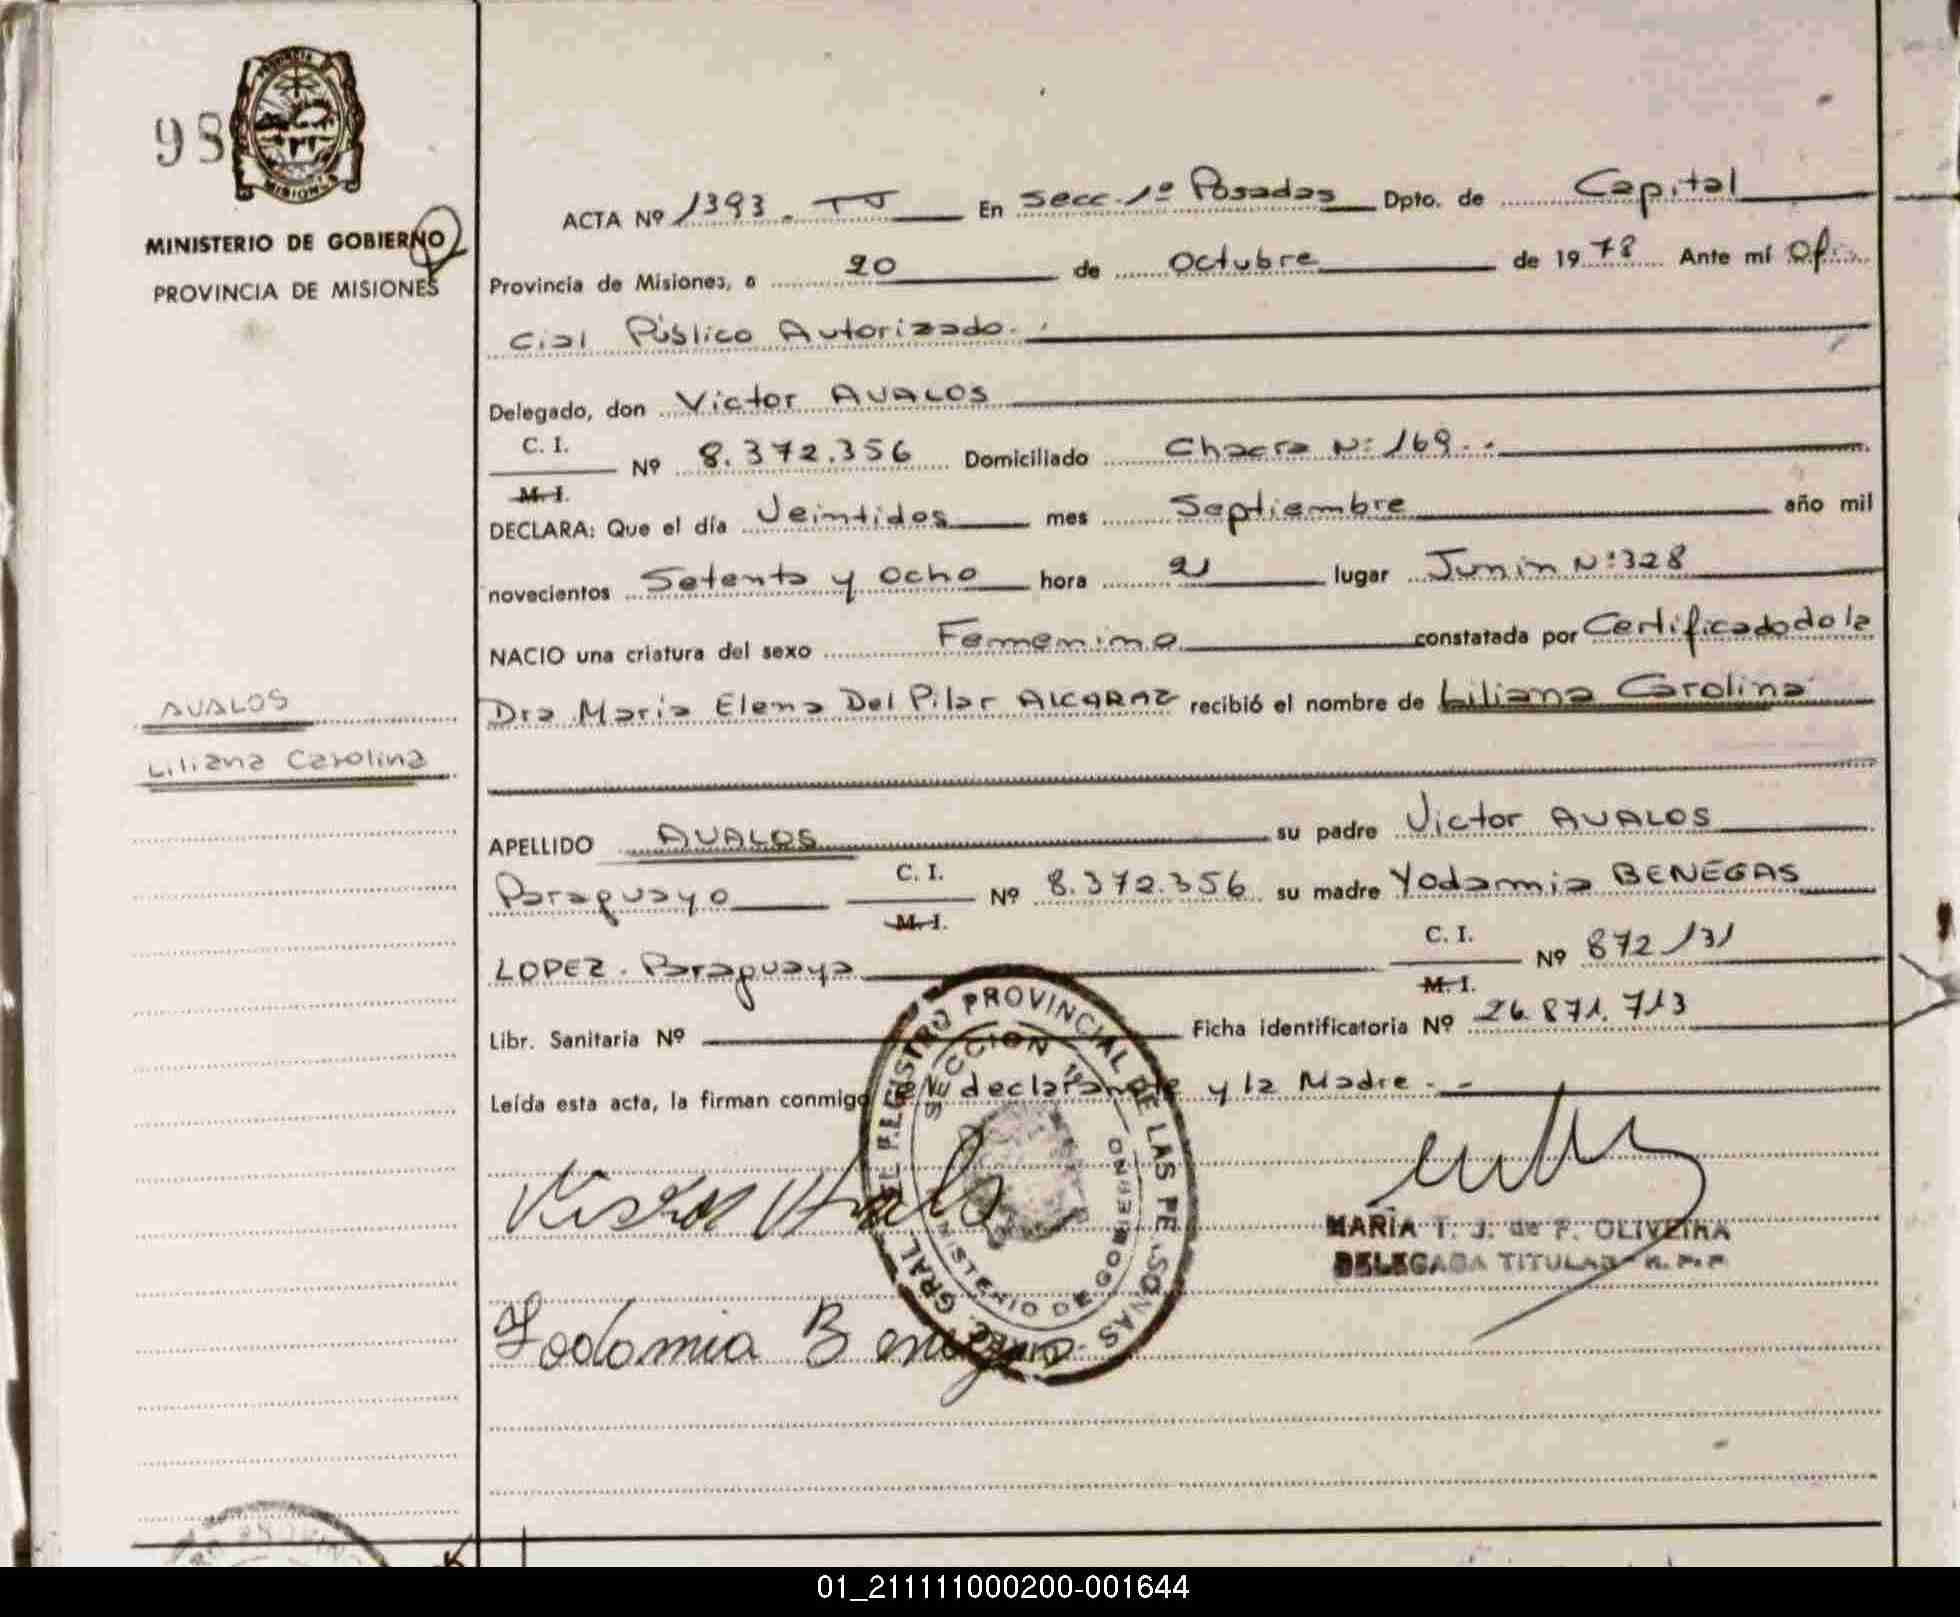 PROVINCIA
MISIONES
98
MINISTERIO DE GOBIERNO
PROVINCIA DE MISIONES
AVALOS
Liliana Carolina
ACTA Nº 1393. TJ En Secc. 1º Posadas Dpto. de Capital
Provincia de Misiones, a 20 de Octubre de 1978 Ante mí Ofi
cial Público Autorizado.
Delegado, don Victor AVALOS
C. I.
M. I. Nº 8.372.356 Domiciliado Chacra Nº 169.
DECLARA: Que el día Veintidos mes Septiembre año mil
novecientos Setenta y Ocho hora 21 lugar Junin Nº 328
NACIO una criatura del sexo Femenino constatada por Certificado de la
Dra Maria Elena Del Pilar ALCARAZ recibió el nombre de Liliana Carolina
APELLIDO AVALOS su padre Victor AVALOS
Paraguayo C. I. M. I. Nº 8.372.356 su madre Yodamia BENEGAS
LOPEZ. Paraguaya C. I. M. I. Nº 872131
Libr. Sanitaria Nº Ficha identificatoria Nº 26.871.713
Leída esta acta, la firman conmigo el declarante y la Madre.
DIREC. GRAL. DEL REGISTRO PROVINCIAL DE LAS PERSONAS
SECCION 1º
MINISTERIO DE GOBIERNO
Yodamia Benegas
MARIA T. J. de F. OLIVEIRA
DELEGADA TITULAR R. P. P.
01_211111000200-001644